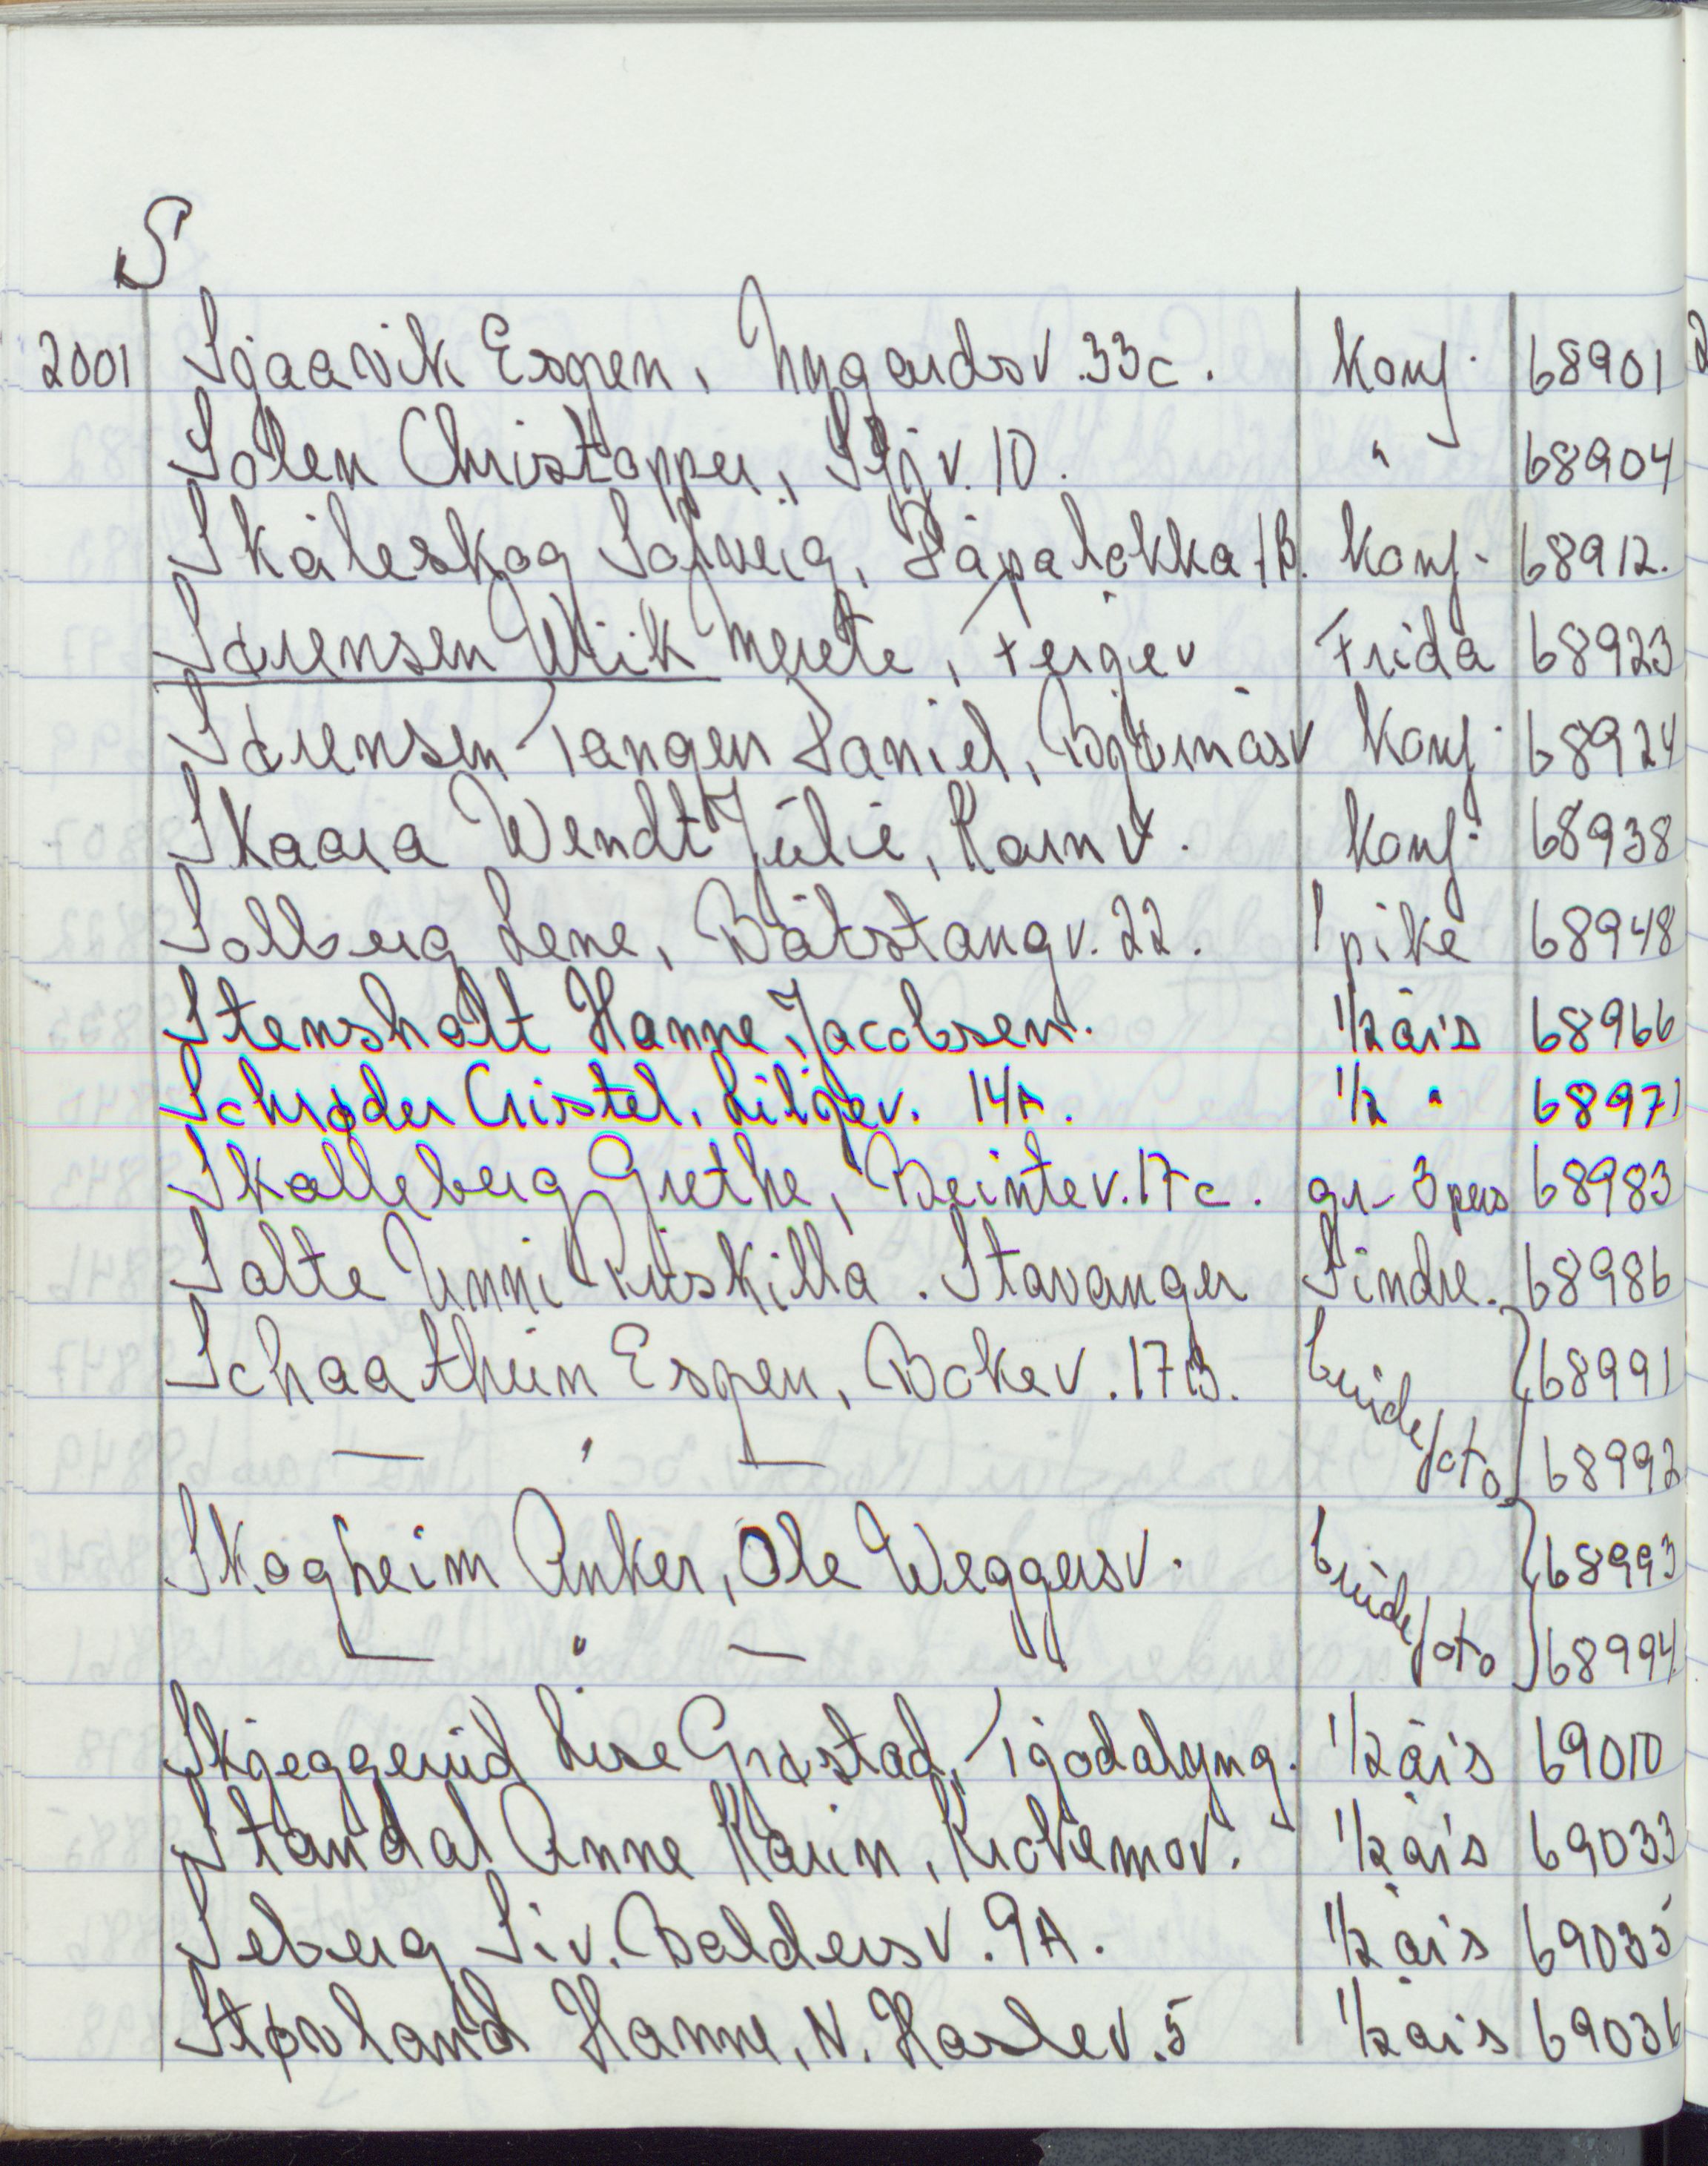 S
2001 Sjaavik Espen, Nygaardsv. 33c. Konf. 68901
Solen Christopper, Stjv. 10. " 68904
Skåleskog Solveig, Håpaløkka 1B. Konf. 68912.
Sørensen Wiik Merete, Fergev Frida 68923
Sørensen Tangen Daniel, Bjørnåsv Konf. 68924
Skaara Wendt Julie, Kornv. Konf. 68938
Solberg Lene, Båtstangv. 22. 1 pike 68948
Stensholt Hanne Jacobsen. 1/2 åis 68966
Schrøder Cristel, Liljev. 14A. 1/2 " 68971
Skalleberg Grethe, Beintev. 17c. gr. 3 pers 68983
Salte Unni Priskilla. Stavanger Sindre. 68986
Schaathun Espen, Bøkev. 17B. brudefoto 68991
— " — 68992
Skogheim Anker, Ole Weggersv. brudefoto 68993
— " — 68994
Skjeggerud Lise Grøstad, Tjodalyng. 1/2 åis 69010
Standal Anne Karin, Krokemov. 1/2 åis 69033
Seberg Siv. Baldersv. 9A. 1/2 åis 69035
Støvland Hanne, N. Haslev. 5 1/2 åis 69036